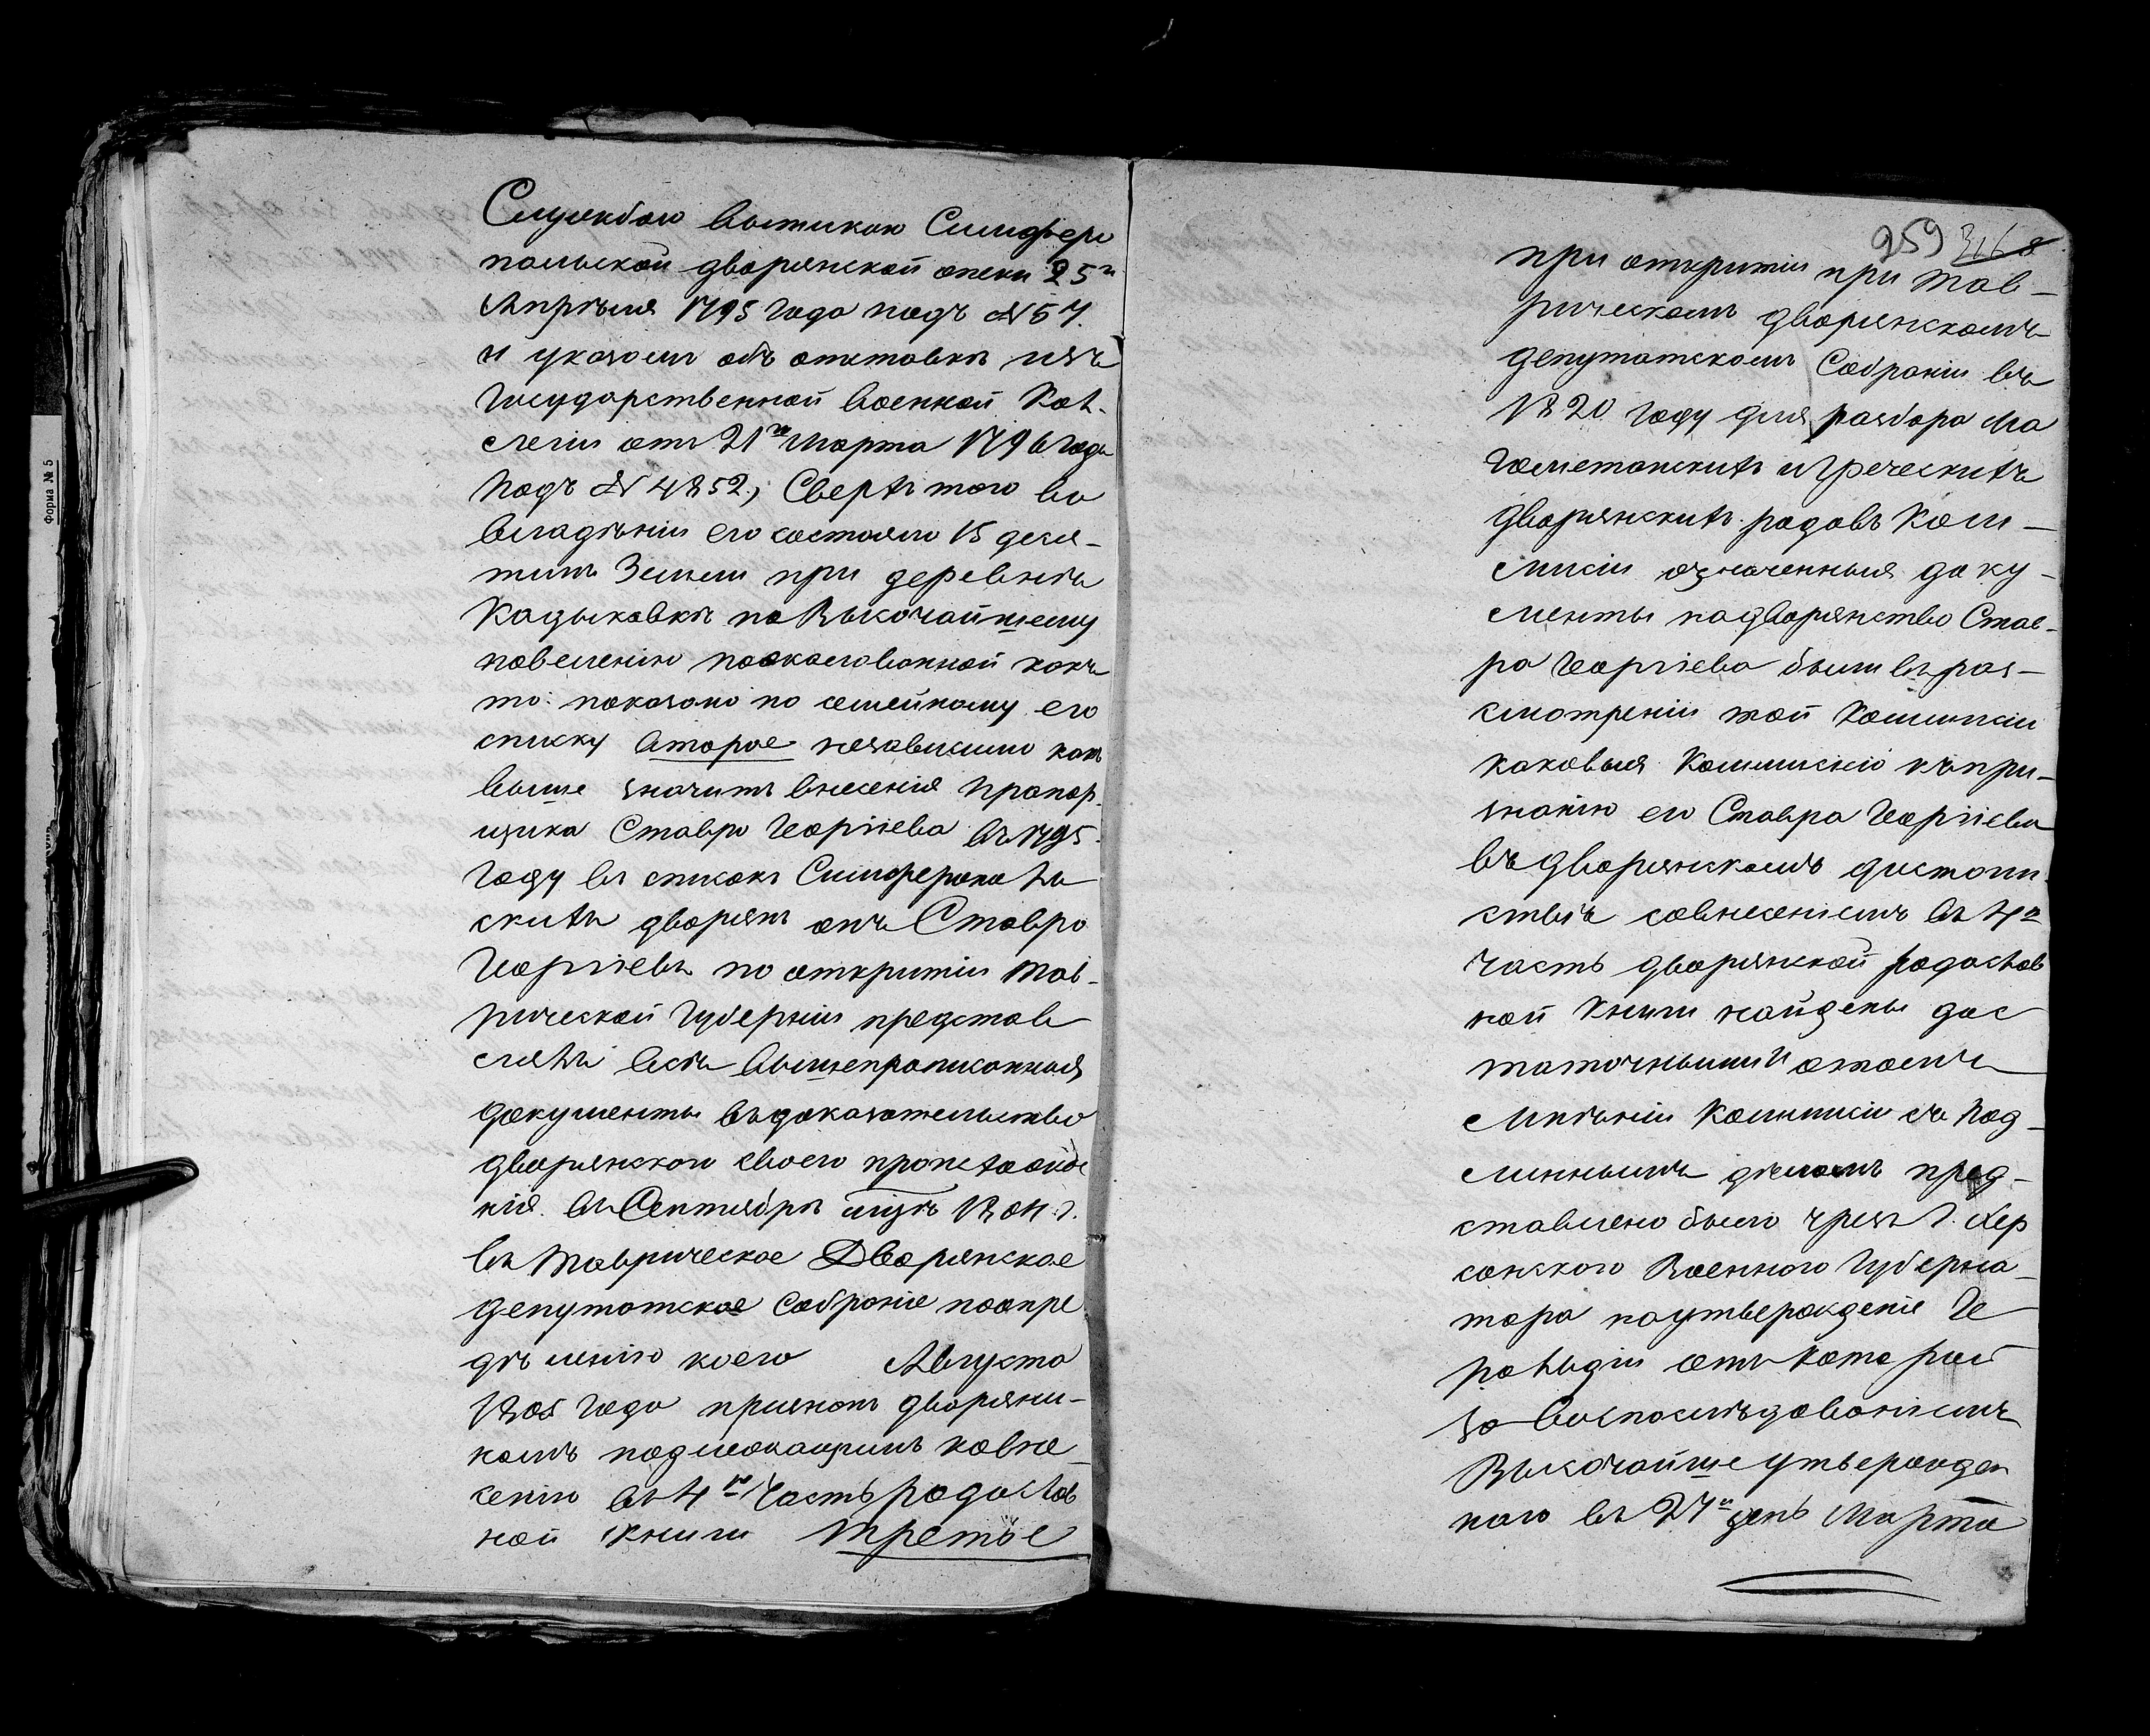 Службою выпискою Симферо
польской дворянской опеки 25го
Апрѣля 1795 года подъ № 57.
и указом объ отставкѣ изъ
Государственной Военной Кол-
легіи отъ 21го Марта 1796 года
Подъ № 4852; Сверхъ того во
владѣніи его состояло 15 деся-
тинъ Земли при деревнѣ
Кадыковкѣ по Высочайшему
повеленію пожалованной какъ
то: показано по семейному его
списку второе независимо какъ
выше значитъ внесенія прапор-
щика Ставро Георгіева въ 1795.
Году въ списокъ Симферополь
скихъ дворянъ онъ Ставро
Георгіевъ по открытіи Тав-
рической Губерніи представ
лялъ всѣ вышепрописанныя
документы въ доказательство
дворянского своего происхожде
нія. въ Сентябрѣ мцѣ 1804 г.
въ Таврическое Дворянское
депутатское Собраніе по опре
дѣленію коего Августа
1805 Года признанъ дворяни-
комъ подлежащимъ ковне-
сенію въ 4ю Часть родослов
ной Книги третье
259 3168
при открытіи при Тав-
рическомъ дворянскомъ
депутатскомъ Собраніи въ
1820 году для разбора Ма
гометанскихъ и Греческихъ
дворянскихъ родовъ Ком-
мисіи означенныя доку-
менты на дворянство Став-
ра Георгіева были въ раз-
смотреніи той Коммисіи
каковыя Коммисіею къ при-
знанію его Ставра Георгіева
въ дворянскомъ достоин-
ствѣ совнесеніемъ въ 4ю
часть дворянской родослов
ной Книги найдены дос
таточными и о томъ
Мнѣніи Коммисіи съ под-
линнымъ дѣломъ пред-
ставлено было чрезъ Г. Хер
сонскаго Военного Губерна-
тора на утвержденіе Ге
рольдіи отъ которой
за воспослѣдованіемъ
Высочайше утвержден
наго въ 27й день Марта
Форма № 5